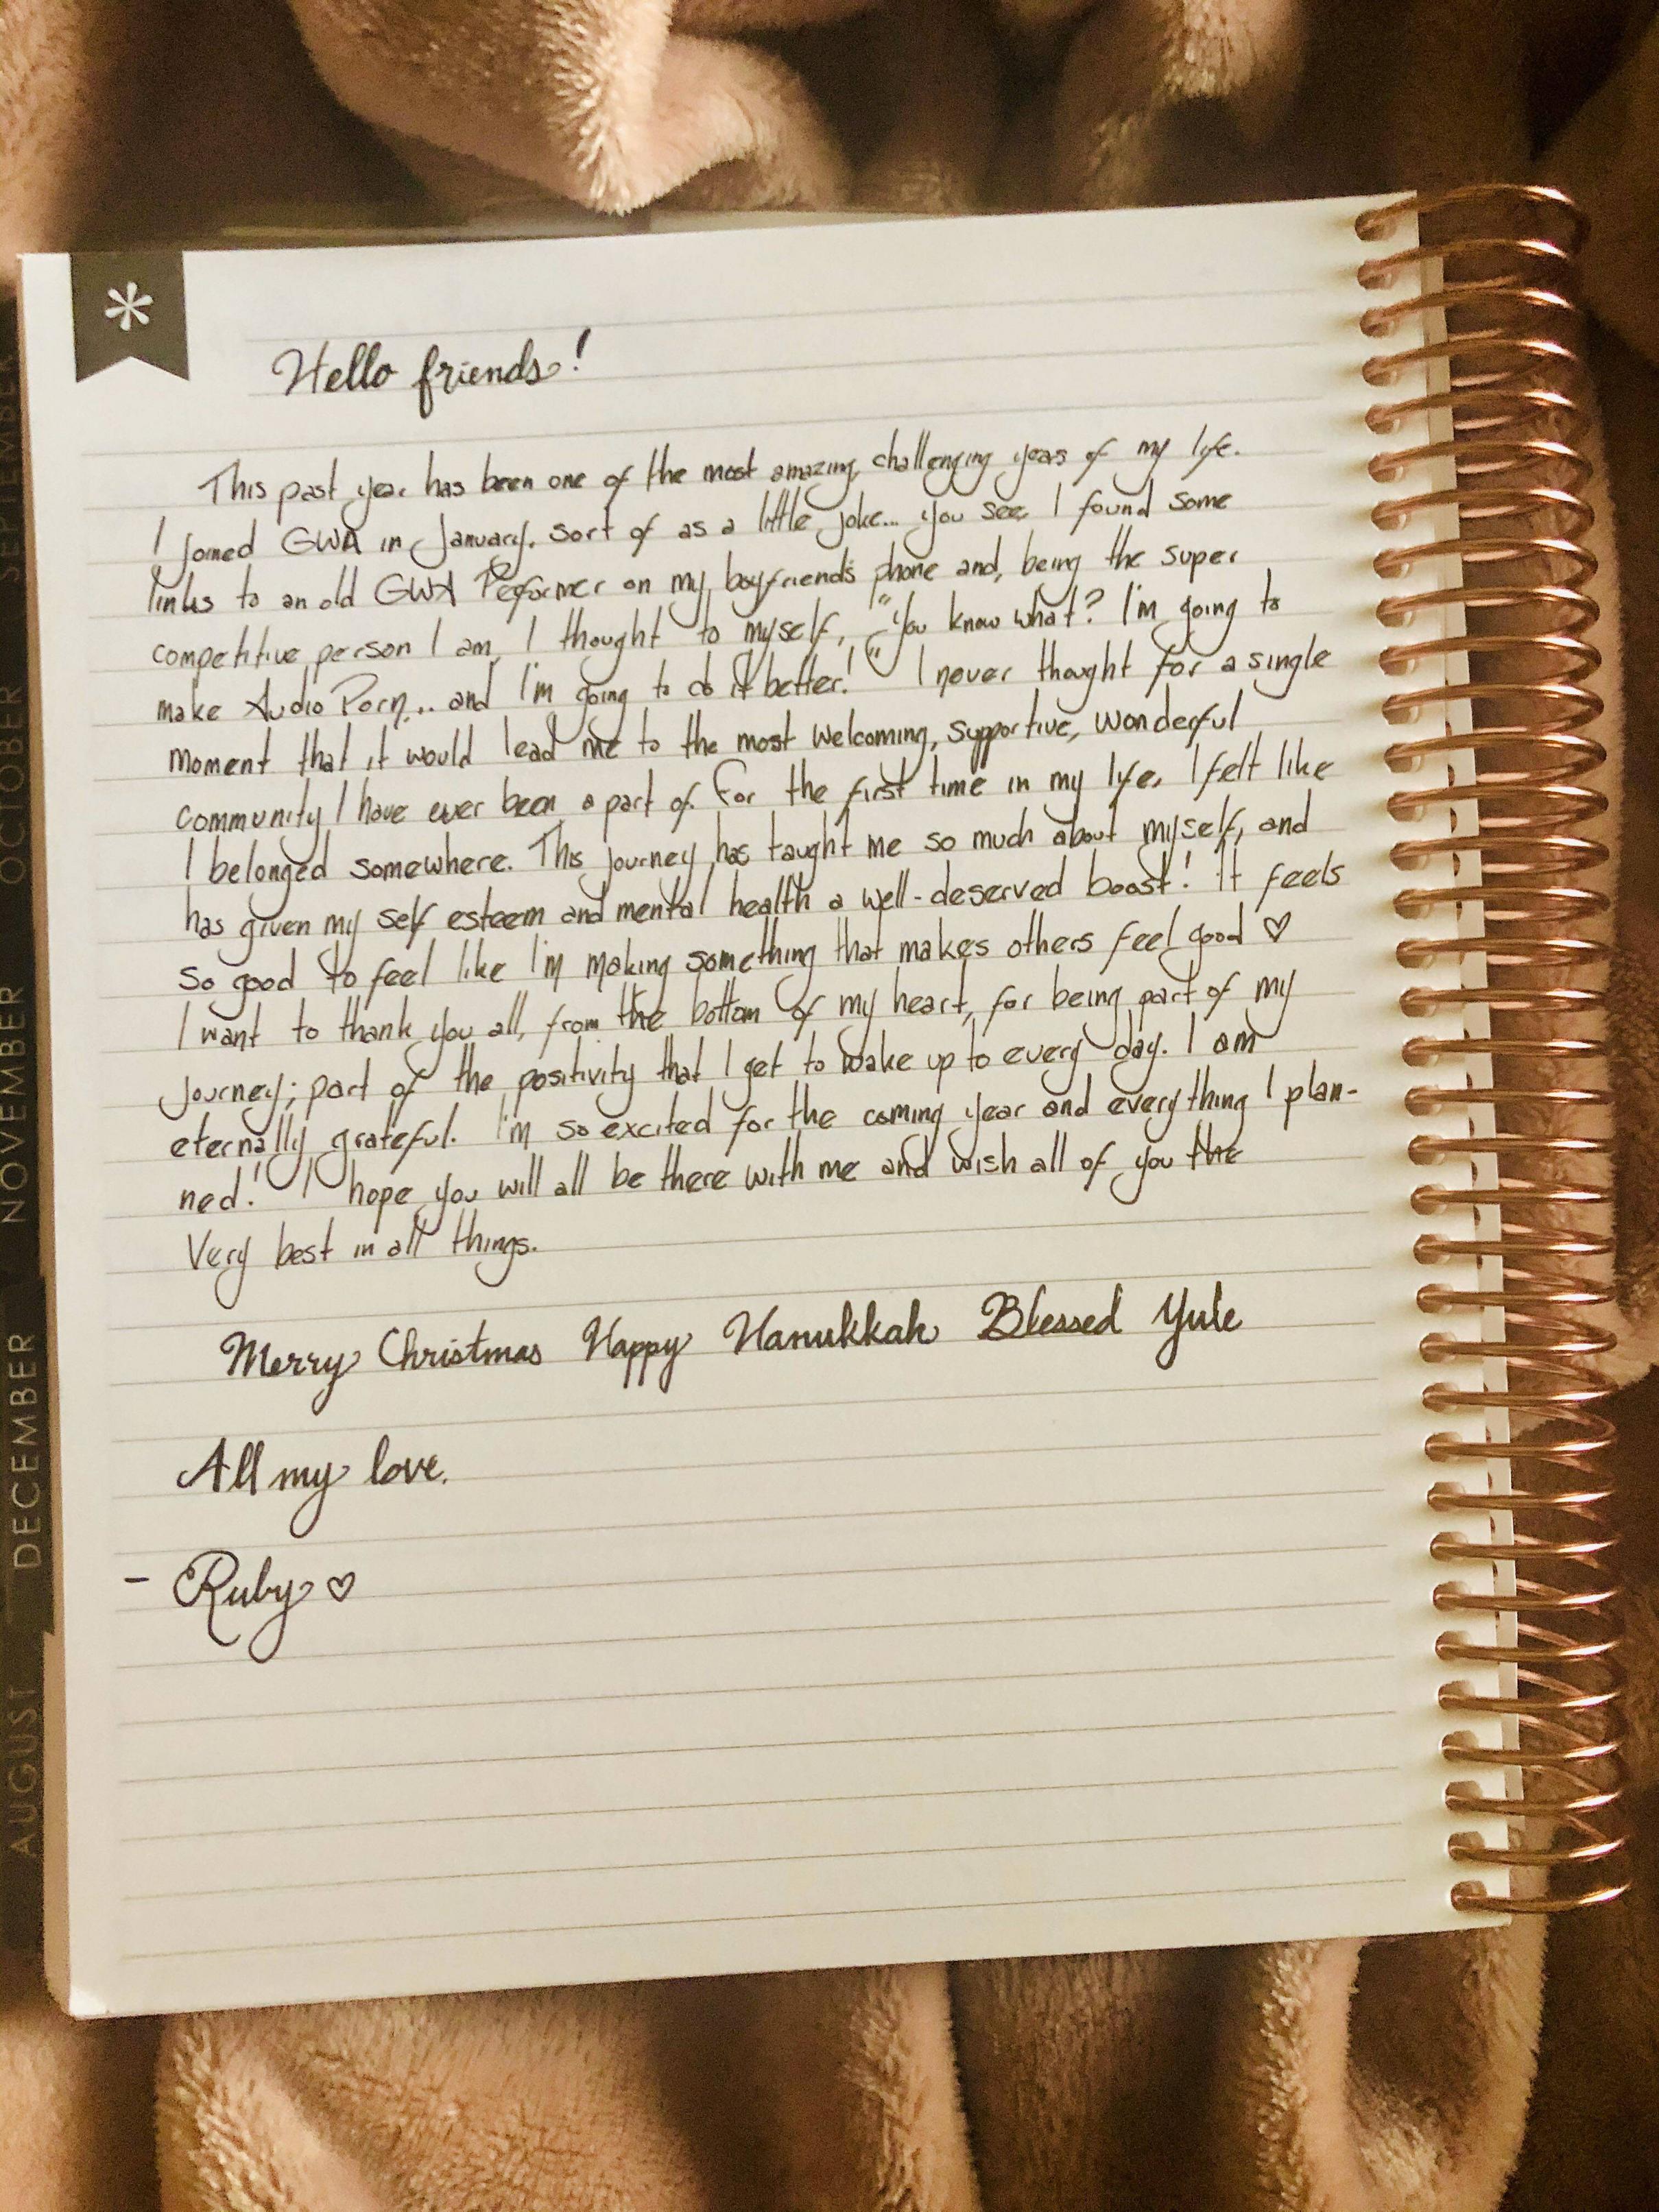 *
Hello friends!
This past year has been one of the most amazing, challenging years of my life.
I joined GWA in January, sort of as a little joke... you see, I found some
links to an old GWA Performer on my boyfriend's phone and, being the super
competitive person I am, I thought to myself, "You know what? I'm going to
make Audio Porn... and I'm going to do it better!" I never thought for a single
moment that it would lead me to the most welcoming, supportive, wonderful
community I have ever been a part of. For the first time in my life, I felt like
I belonged somewhere. This journey has taught me so much about myself, and
has given my self esteem and mental health a well-deserved boost! It feels
so good to feel like I'm making something that makes others feel good ♡
I want to thank you all, from the bottom of my heart, for being part of my
journey; part of the positivity that I get to wake up to every day. I am
eternally grateful. I'm so excited for the coming year and everything I plan-
ned! I hope you will all be there with me and wish all of you the
very best in all things.
Merry Christmas Happy Hanukkah Blessed Yule
All my love,
- Ruby ♡
AUGUST
SEPTEMBER
OCTOBER
NOVEMBER
DECEMBER